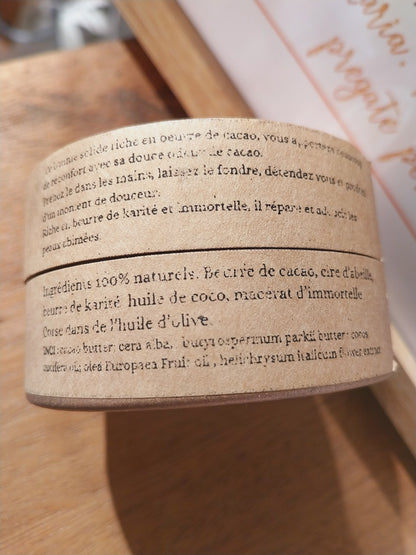 Ce baume solide riche en beurre de cacao, vous apportera
de réconfort avec sa douce odeur de cacao.
Prenez le dans les mains, laissez le fondre, détendez vous et
d'un moment de douceur.
Riche en beurre de karité et immortelle, il répare et adoucit les
peaux abimées.
Ingrédients 100% naturels. Beurre de cacao, cire d'abeille,
beurre de karité, huile de coco, macérat d'immortelle
Corse dans de l'huile d'olive.
INCI : cacao butter, cera alba, butyrospermum parkii butter, cocos
nucifera oil, olea Europaea Fruit oil, helichrysum italicum flower extract
maria.
pregate